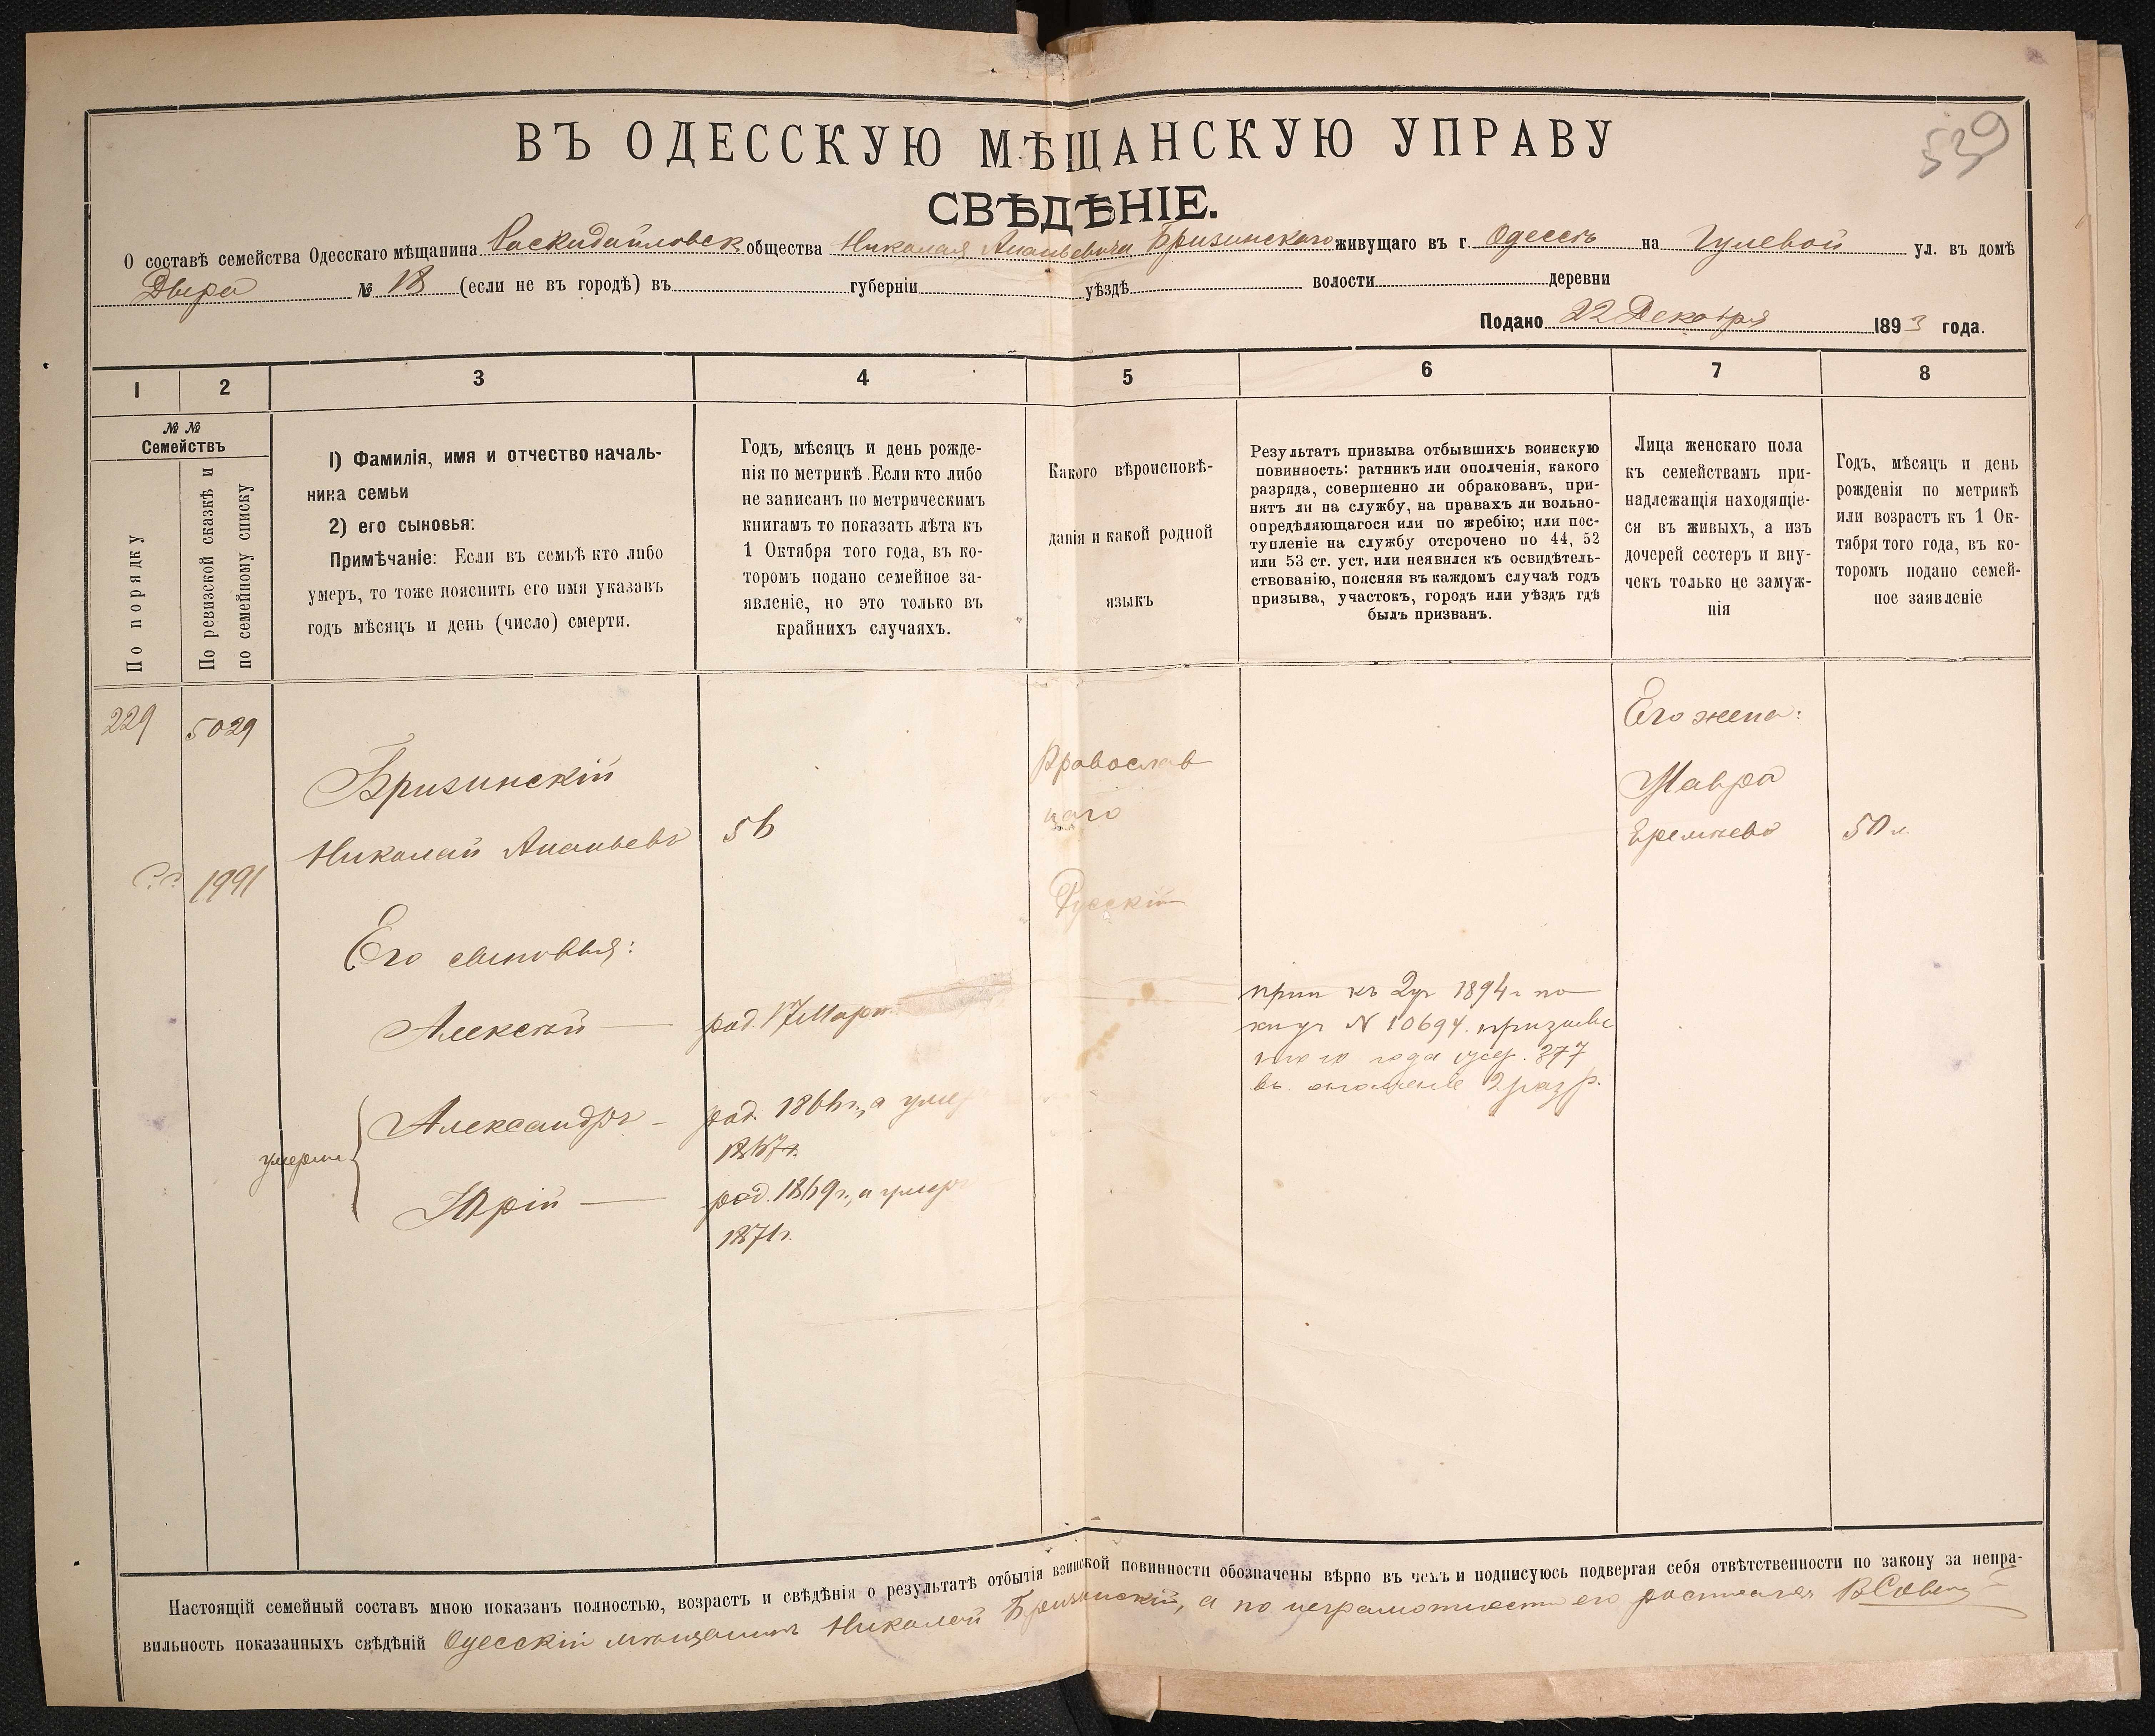 539
ВЪ ОДЕССКУЮ МѢЩАНСКУЮ УПРАВУ
СВѢДѢНІЕ.
О составѣ семейства Одесскаго мѣщанина Раскидайловск общества Николая Ананьевича Бризинскаго живущаго въ г. Одессѣ на Гулевой ул. въ домѣ
№ 18 (если не въ городѣ) въ губерніи уѣздѣ волости деревни
Подано 22 Декабря 1893 года.
1 2 3 4 5 6 7 8
№ №
Семействъ
По порядку
По ревизской сказкѣ и
по семейному списку
1) Фамилія, имя и отчество началь-
ника семьи
2) его сыновья:
Примѣчаніе: Если въ семьѣ кто либо
умеръ, то тоже пояснить его имя указавъ
годъ мѣсяцъ и день (число) смерти.
Годъ, мѣсяцъ и день рожде-
нія по метрикѣ. Если кто либо
не записанъ по метрическимъ
книгамъ то показать лѣта къ
1 Октября того года, въ ко-
торомъ подано семейное за-
явленіе, но это только въ
крайнихъ случаяхъ.
Какого вѣроисповѣ-
данія и какой родной
языкъ
Результатъ призыва отбывшихъ воинскую
повинность: ратникъ или ополченія, какого
разряда, совершенно ли обракованъ, при-
нятъ ли на службу, на правахъ ли вольно-
опредѣляющагося или по жребію; или пос-
тупленіе на службу отсрочено по 44, 52
или 53 ст. уст. или неявился къ освидѣтель-
ствованію, поясняя въ каждомъ случаѣ годъ
призыва, участокъ, городъ или уѣздъ гдѣ
былъ призванъ.
Лица женскаго пола
къ семействамъ при-
надлежащія находящіе-
ся въ живыхъ, а изъ
дочерей сестеръ и вну-
чекъ только не замуж-
нія
Годъ, мѣсяцъ и день
рожденія по метрикѣ
или возрастъ къ 1 Ок-
тября того года, въ ко-
торомъ подано семей-
ное заявленіе
229 5029
1991
Бризинскій
Николай Ананьевъ 56
Православ
наго
Русскій
Его жена:
Мавра
Еремѣева 50 л.
Его сыновья:
Алексѣй род. 17 Март
прип къ 2 уч 1894 г по
N 10694.
года 377
въ ополченіе 2 разр.
умерли
Александръ род. 1866 г., а умер
1867 г.
Юрій род. 1869 г., а умеръ
1871 г.
Настоящій семейный составъ мною показанъ полностью, возрастъ и свѣдѣнія о результатѣ отбытія воинской повинности обозначены вѣрно въ чемъ и подписуюсь подвергая себя отвѣтственности по закону за непра-
вильность показанныхъ свѣдѣній Одесскій мѣщанинъ Николай Бризинскій, а по неграмотности его росписался